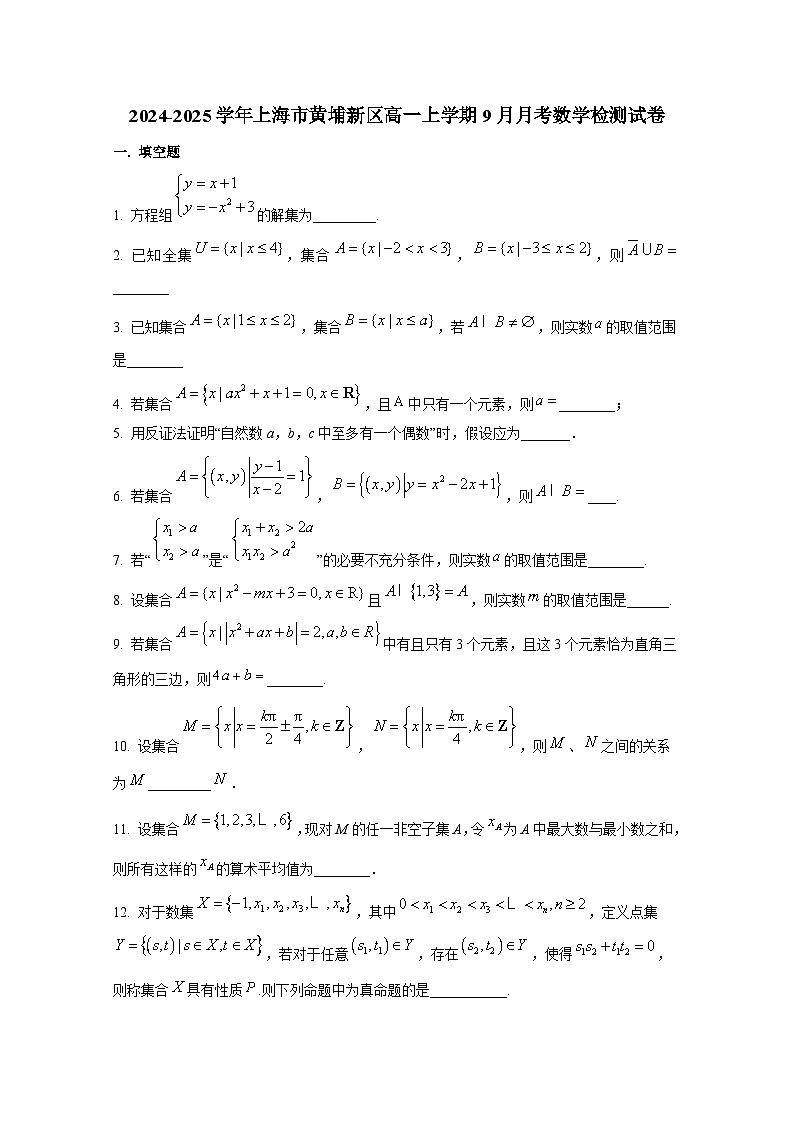 2024-2025学年上海市黄埔新区高一上学期9月月考数学检测试卷
一. 填空题
1. 方程组{y = x+1, y = −x²+3的解集为_________.
2. 已知全集U = {x | x ≤ 4},集合A = {x | −2 < x < 3},B = {x | −3 ≤ x ≤ 2},则A̅ ∪ B =
________
3. 已知集合A = {x | 1 ≤ x ≤ 2},集合B = {x | x ≤ a},若A I B ≠ ∅,则实数a的取值范围
是________
4. 若集合A = {x | ax² + x + 1 = 0, x ∈ R},且A中只有一个元素,则a = ________;
5. 用反证法证明“自然数a,b,c中至多有一个偶数”时,假设应为_______.
6. 若集合A = {(x, y) | (y−1)/(x−2) = 1},B = {(x, y) | y = x² − 2x + 1},则A I B = ____.
7. 若“{x₁ > a, x₂ > a”是“{x₁ + x₂ > 2a, x₁x₂ > a²”的必要不充分条件,则实数a的取值范围是________.
8. 设集合A = {x | x² − mx + 3 = 0, x ∈ R}且A I {1,3} = A,则实数m的取值范围是______.
9. 若集合A = {x | |x² + ax + b| = 2, a, b ∈ R}中有且只有3个元素,且这3个元素恰为直角三
角形的三边,则4a + b = ________.
10. 设集合M = {x | x = kπ/2 ± π/4, k ∈ Z},N = {x | x = kπ/4, k ∈ Z},则M、N之间的关系
为M _________ N.
11. 设集合M = {1,2,3,L ,6},现对M的任一非空子集A,令x_A为A中最大数与最小数之和,
则所有这样的x_A的算术平均值为________.
12. 对于数集X = {−1, x₁, x₂, x₃, L , xₙ},其中0 < x₁ < x₂ < x₃ < L < xₙ, n ≥ 2,定义点集
Y = {(s,t) | s ∈ X, t ∈ X},若对于任意(s₁,t₁) ∈ Y,存在(s₂,t₂) ∈ Y,使得s₁s₂ + t₁t₂ = 0,
则称集合X具有性质P.则下列命题中为真命题的是___________.